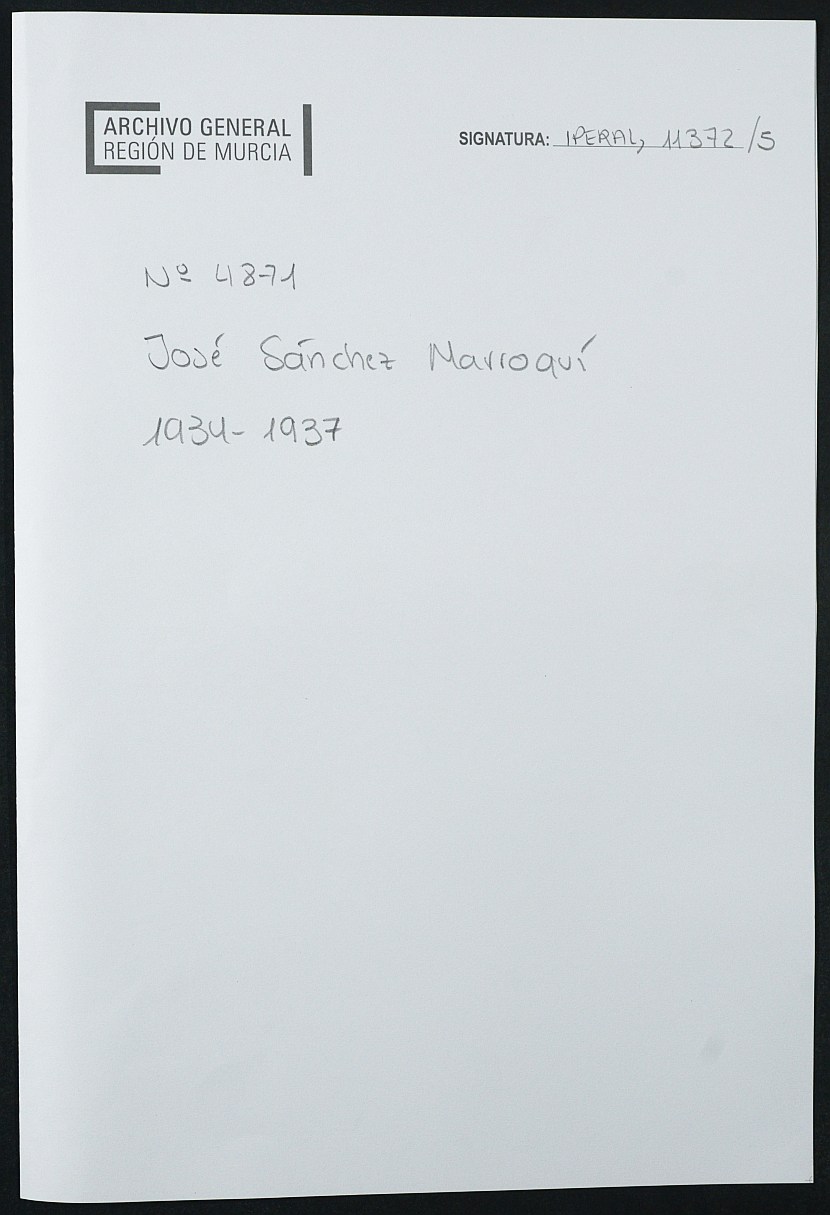 ARCHIVO GENERAL
REGIÓN DE MURCIA
SIGNATURA: IPERAL, 11372/5
Nº 4871
José Sánchez Marroquí
1934-1937